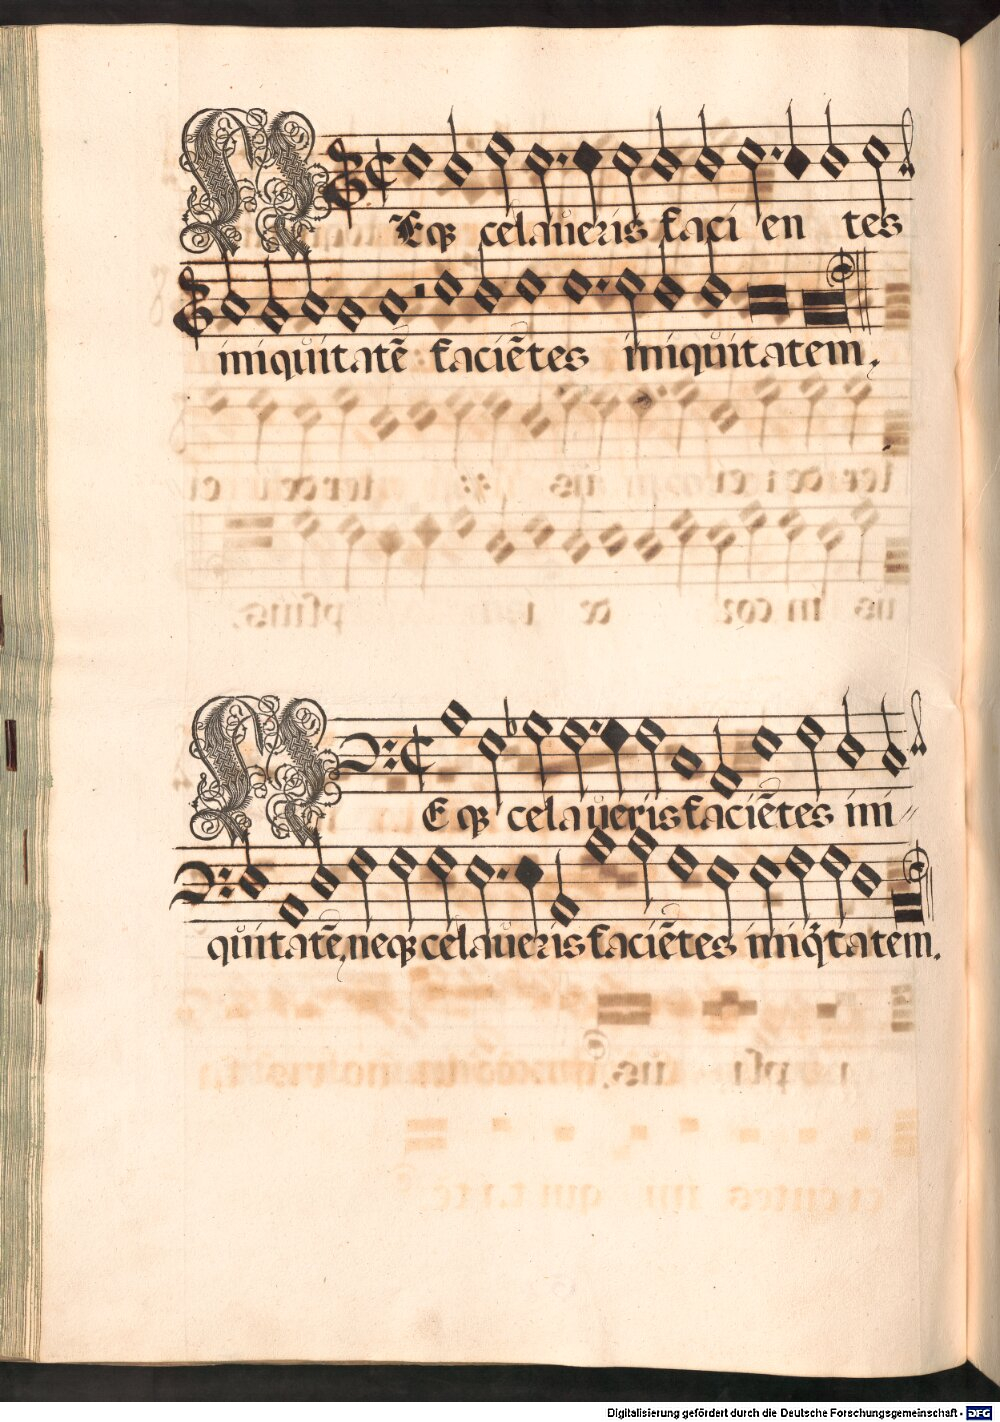 NEqꝫ celaueris faci en tes
iniquitatē faciētes iniquitatem.
NEqꝫ celaueris faciētes ini
quitatē, neqꝫ celaueris faciētes iniq̃tatem.
Digitalisierung gefördert durch die Deutsche Forschungsgemeinschaft - DFG